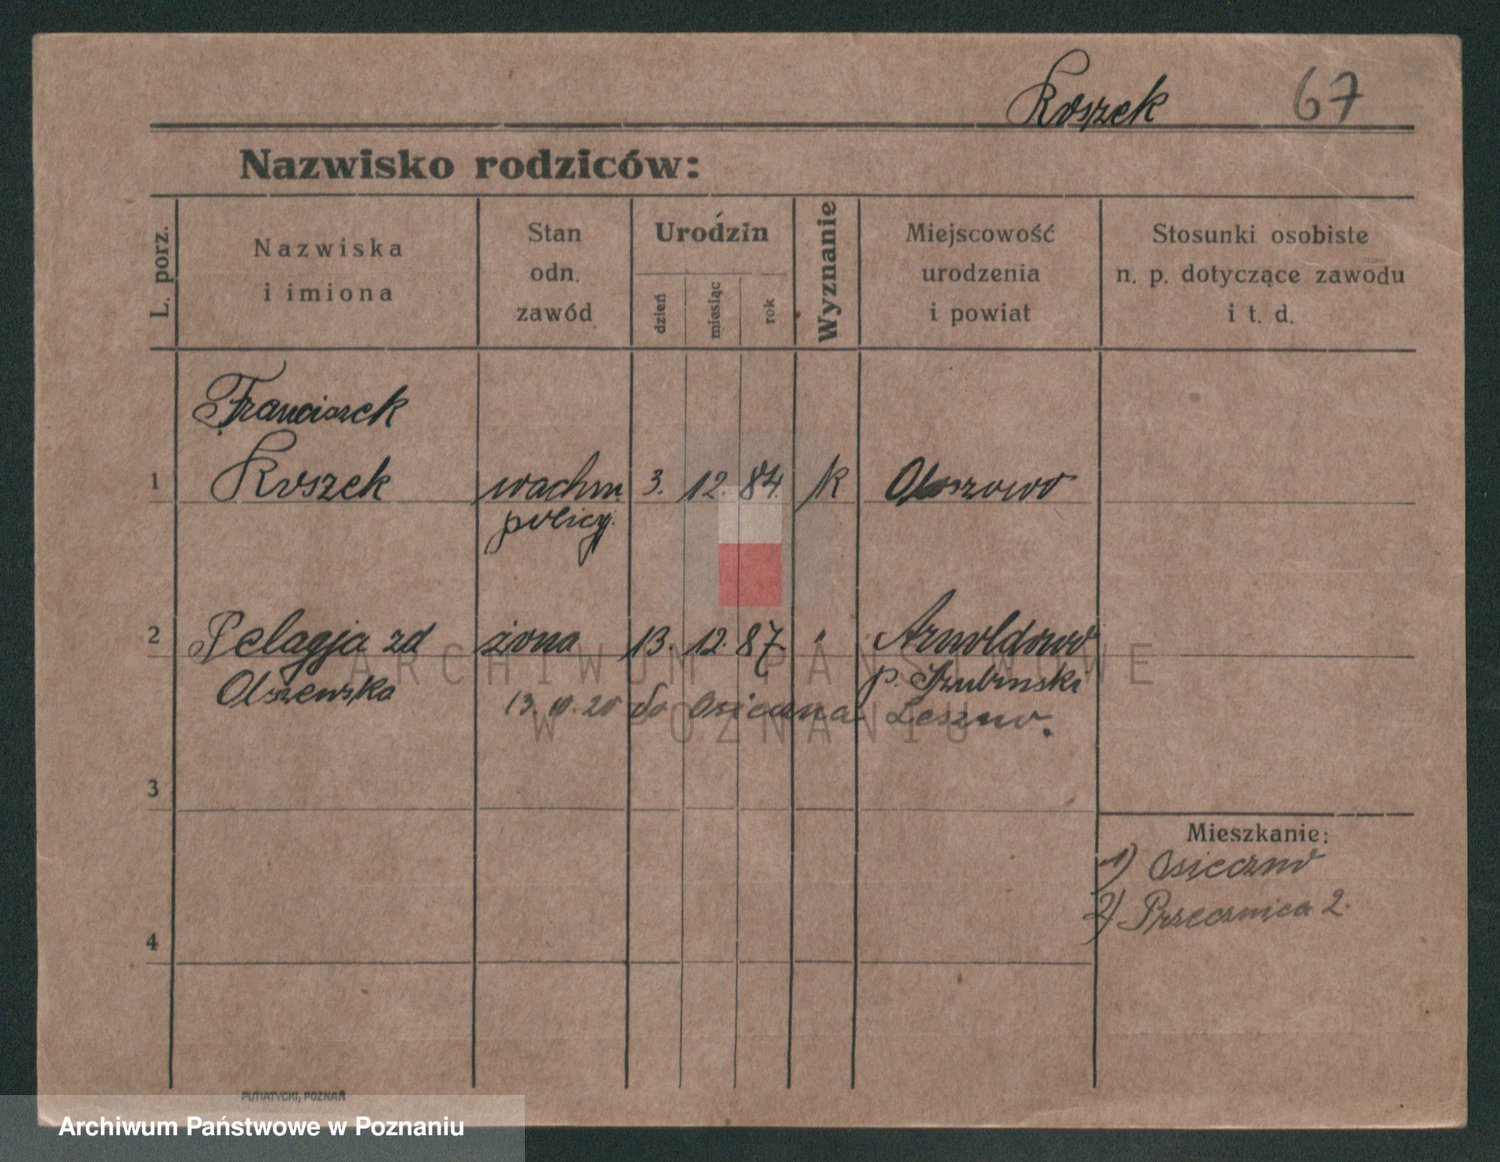 Koszek 67
Nazwisko rodziców:
L. porz.
Nazwiska
i imiona
Stan
odn.
zawód
Urodzin
dzień
miesiąc
rok
Wyznanie
Miejscowość
urodzenia
i powiat
Stosunki osobiste
n. p. dotyczące zawodu
i t. d.
Franciszek
1 Koszek wachm. 3. 12. 84. k
policy.
2 Pelagja zd żona 13. 12. 87. " Arnoldowo
Olszewska p. Szubinski
13. 10. 20 do Osieczna Leszno.
3
4
Mieszkanie:
1) Osieczno
2) Przecznica 2.
ARCHIWUM PAŃSTWOWE
W POZNANIU
PUTIATYCKI, POZNAŃ
Archiwum Państwowe w Poznaniu